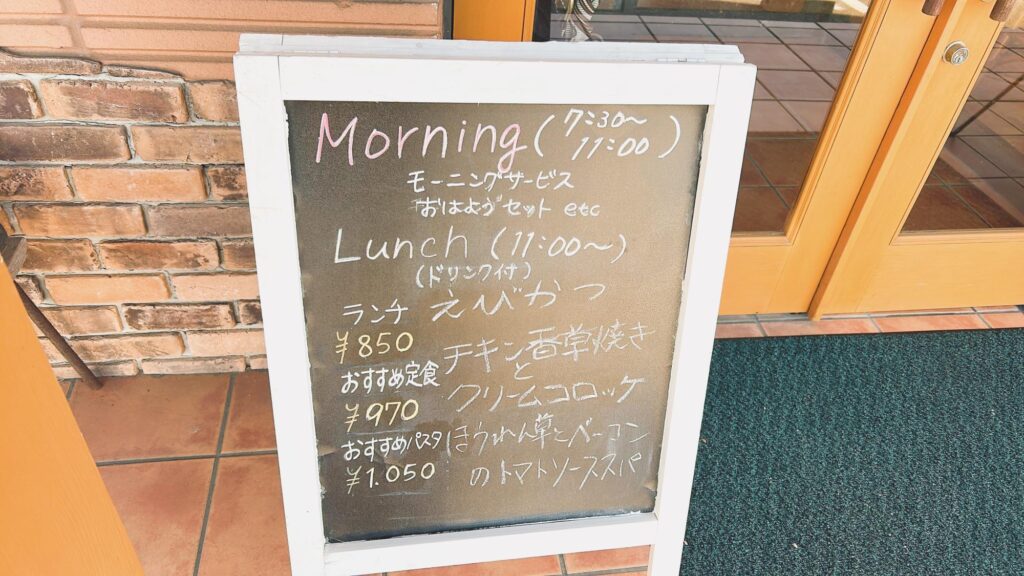 Morning (7:30~11:00)
モーニングサービス
おはようセット etc
Lunch (11:00~)
(ドリンク付)
ランチ えびかつ
¥850
チキン香草焼き
と
おすすめ定食 クリームコロッケ
¥970
おすすめパスタ ほうれん草とベーコン
¥1.050 のトマトソーススパ